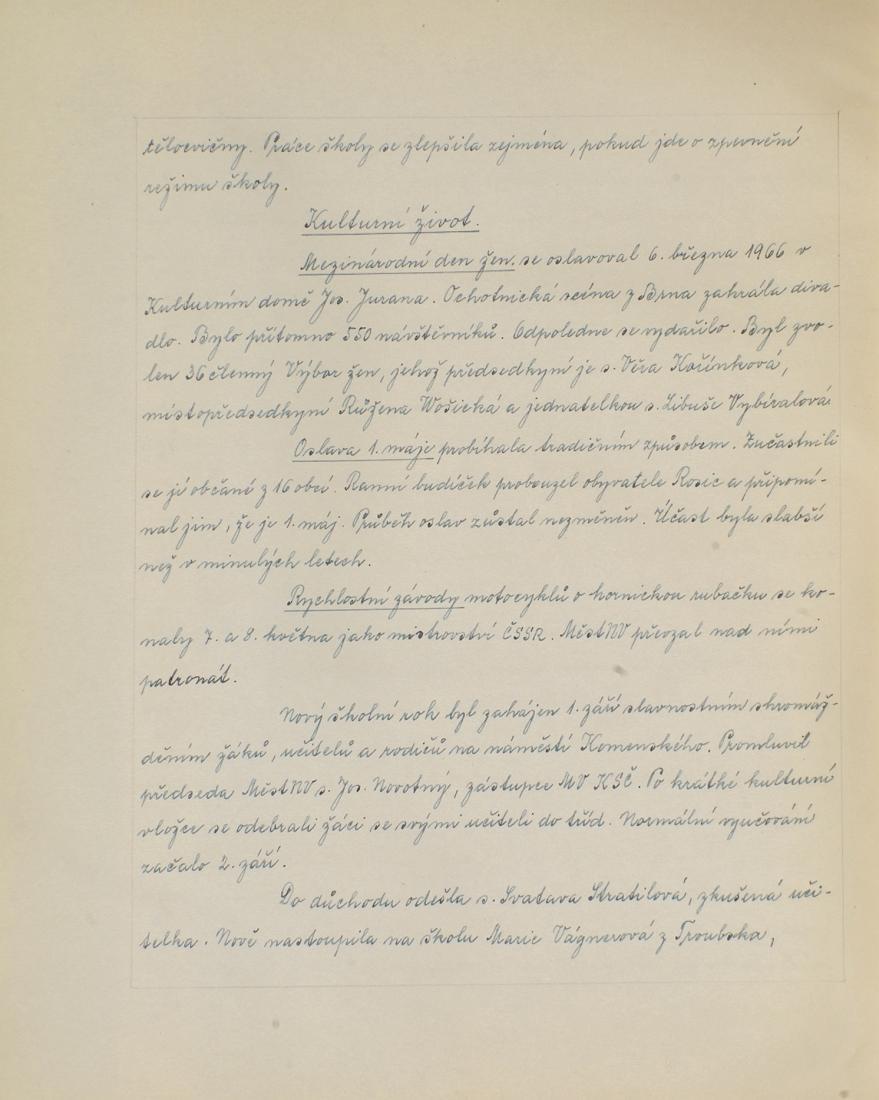 tělocvičny. Práce školy se zlepšila zejména, pokud jde o zpevnění
režimu školy.
Kulturní život.
Mezinárodní den žen. se oslavoval 6. března 1966 v
Kulturním domě Jos. Jurana. Ochotnická scéna z Brna zahrála diva-
dlo. Bylo přítomno 550 návštěvníků. Odpoledne se vydařilo. Byl zvo-
len 36 členný Výbor žen, jehož předsedkyní je s. Věra Kořínková,
místopředsedkyní Růžena Wošická a jednatelkou s. Libuše Vybíralová.
Oslava 1. máje probíhala tradičním způsobem. Zúčastnili
se jí občané z 16 obcí. Ranní budíček probouzel obyvatele Rosic a připomí-
nal jim, že je 1. máj. Průběh oslav zůstal nezměněn. Účast byla slabší
než v minulých letech.
Rychlostní závody motocyklů o hornickou rubačku se ko-
naly 7. a 8. května jako mistrovství ČSSR. MěstNV převzal nad nimi
patronát.
Nový školní rok byl zahájen 1. září slavnostním shromáž-
děním žáků, učitelů a rodičů na náměstí Komenského. Promluvil
předseda MěstNV s. Jos. Novotný, zástupce MV KSČ. Po krátké kulturní
vložce se odebrali žáci se svými učiteli do tříd. Normální vyučování
začalo 2. září.
Do důchodu odešla s. Svatava Stratilová, zkušená uči-
telka. Nově nastoupila na školu Marie Vágnerová z Troubska,